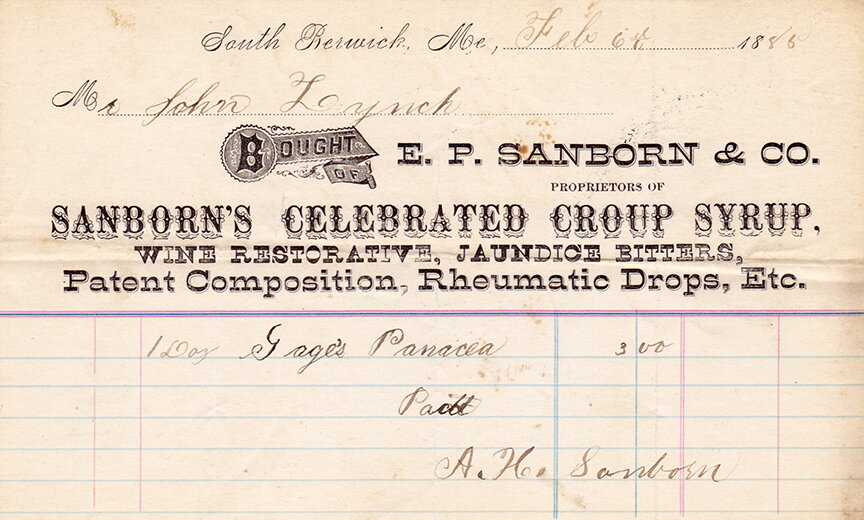 South Berwick, Me, Feb 6th 1885
Mr John Lynch
BOUGHT OF E. P. SANBORN & CO.
PROPRIETORS OF
SANBORN'S CELEBRATED CROUP SYRUP,
WINE RESTORATIVE, JAUNDICE BITTERS,
Patent Composition, Rheumatic Drops, Etc.
1 Doz Gage's Panacea 3 00
Paid
A. H. Sanborn